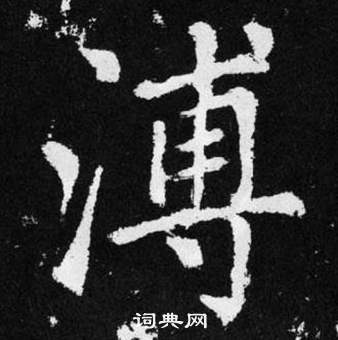 溥
词典网